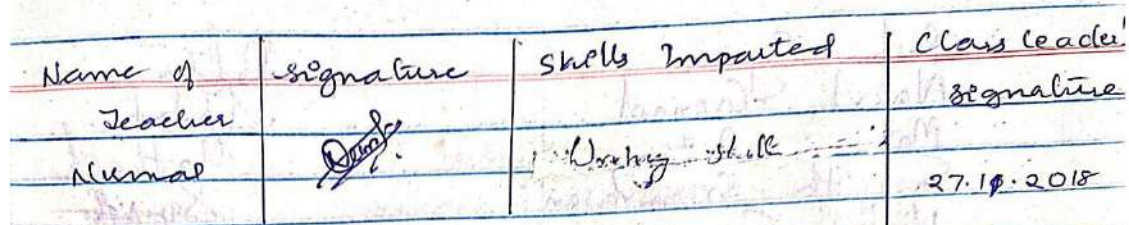 Name of Teacher
Signature
Skills Imparted
Class leader's signature
Nirmal
Writing skill
27.11.2018